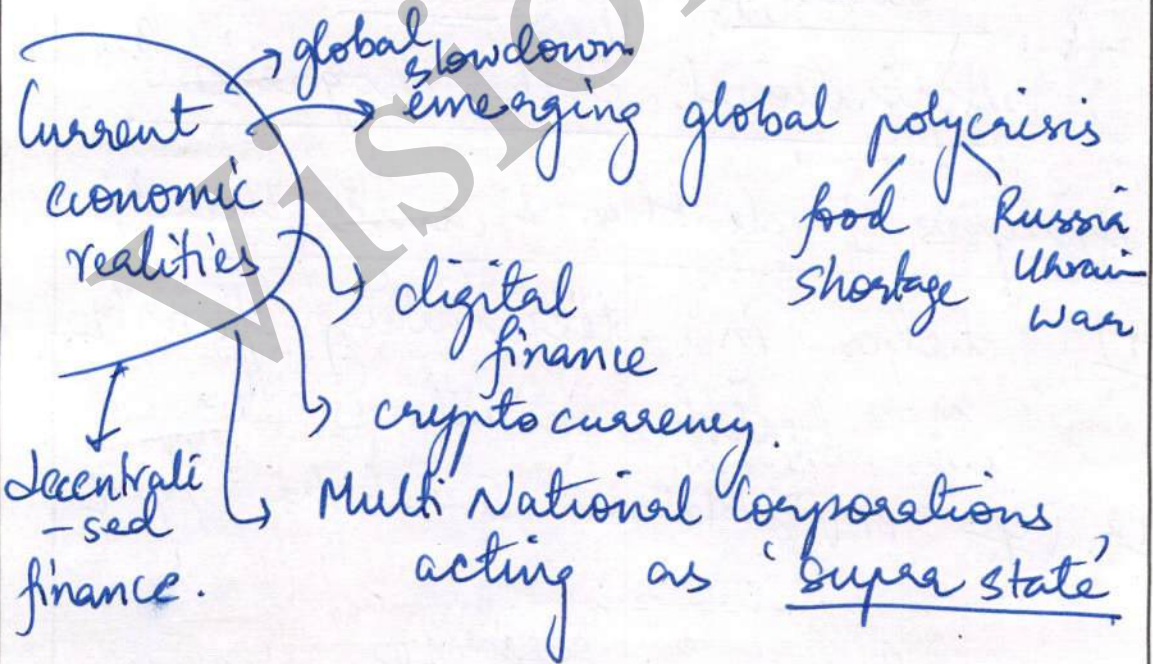 global
slowdown
Current
economic
realities
emerging global polycrisis
food
shortage
Russia
Ukrain
war
digital
finance
cryptocurrency.
decentrali
-sed
finance.
Multi National Corporations
acting as 'supra state'
Visio